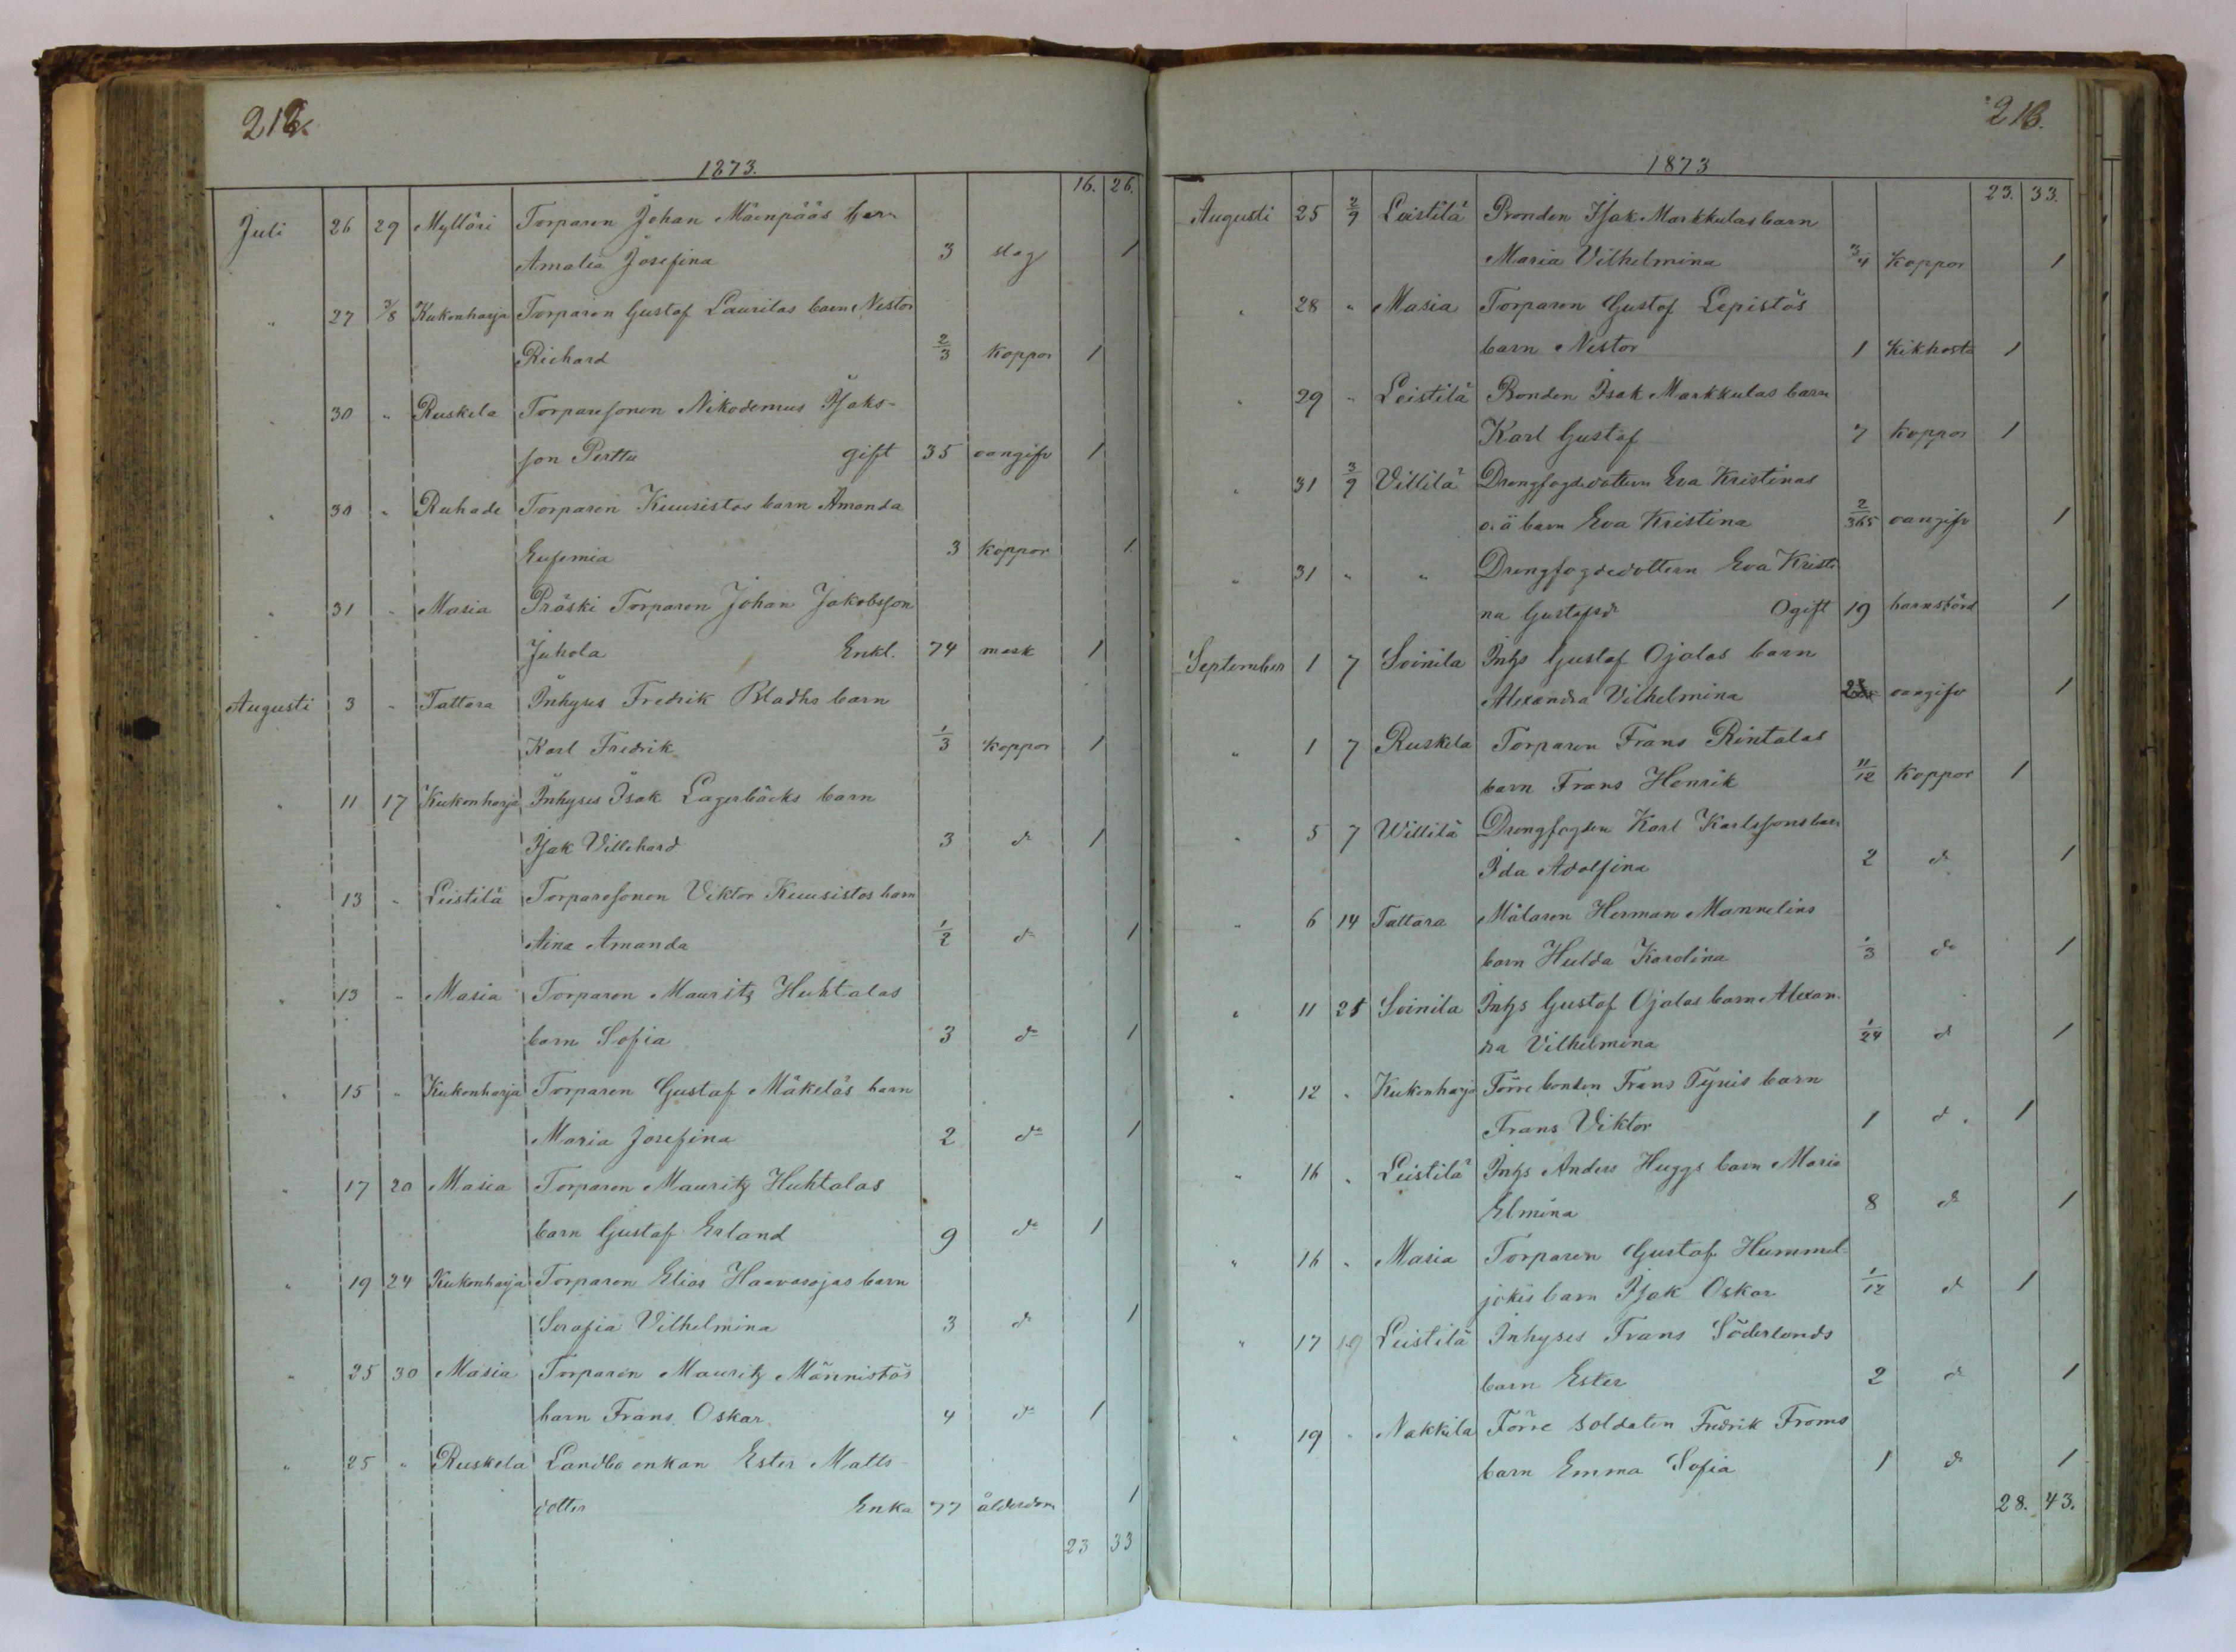 212.
1873.
16. 26.
Juli 26 29 Mylläri Torparen Johan Mäenpääs barn
Amalia Josefina 3 slag 1
" 27 3/8 Kukonharja Torparen Gustaf Laurilas barn Nestor
Richard 2/3 koppor 1
" 30 " Ruskela Torparesonen Nikodemus Isaks-
son Perttu gift 35 oangifv 1
" 30 " Ruhade Torparen Kuusistos barn Amanda
Eufemia 3 koppor 1
" 31 " Masia Präski Torparen Johan Jakobsson
Juhola Enkl. 74 mask 1
Augusti 3 " Tattara Inhyses Fredrik Bladhs barn
Karl Fredrik 1/3 koppor 1
" 11 17 Kukonharja Inhyses Isak Lagerbäcks barn
Isak Villehard 3 do 1
" 13 " Leistilä Torparesonen Viktor Kuusistos barn
Aina Amanda 1/2 do 1
" 13 " Masia Torparen Mauritz Huhtalas
barn Sofia 3 do 1
" 15 " Kukonharja Torparen Gustaf Mäkeläs barn
Maria Josefina 2 do 1
" 17 20 Masia Torparen Mauritz Huhtalas
barn Gustaf Erland 9 do 1
" 19 24 Kukonharja Torparen Elias Haavasojas barn
Serafia Vilhelmina 3 do 1
" 25 30 Masia Torparen Mauritz Männistös
barn Frans Oskar 4 do 1
" 25 " Ruskela Landbo enkan Ester Matts
dotter Enka 77 ålderdom 1
23 33
213.
1873
23. 33.
Augusti 25 2/9 Leistilä Bonden Isak Markkulas barn
Maria Vilhelmina 3/4 koppor 1
" 28 " Masia Torparen Gustaf Lepistös
barn Nestor 1 Kikhosta 1
" 29 " Leistilä Bonden Isak Markkulas barn
Karl Gustaf 7 koppor 1
" 31 3/9 Villilä Drengfogdedottern Eva Kristinas
o. ä barn Eva Kristina 2/365 oangifv 1
" 31 " " Drengfogdedottern Eva Kristi
na Gustafsdr Ogift 19 barnsbörd 1
September 1 7 Soinila Inhs Gustaf Ojalas barn
Alexandra Vilhelmina oangifv 1
" 1 7 Ruskela Torparen Frans Rintalas
barn Frans Henrik 11/12 koppor 1
" 5 7 Willilä Drengfogden Karl Karlssons barn
Ida Adolfina 2 do 1
" 6 14 Tattara Målaren Herman Mannelins
barn Hulda Karolina 1/3 do 1
" 11 21 Soinila Inhs Gustaf Ojalas barn Alexan-
dra Vilhelmina 1/24 do 1
" 12 " Kukonharja Förre bonden Frans Tynis barn
Frans Viktor 1 do. 1
" 16 " Leistilä Inhs Anders Huggs barn Maria
Elmina 8 do 1
" 16 " Masia Torparen Gustaf Hummel-
jokis barn Isak Oskar 1/12 do 1
" 17 19 Leistilä Inhyses Frans Söderlunds
barn Ester 2 do 1
" 19 " Nakkila Förre soldaten Fredrik Froms
barn Emma Sofia 1 do 1
28. 43.